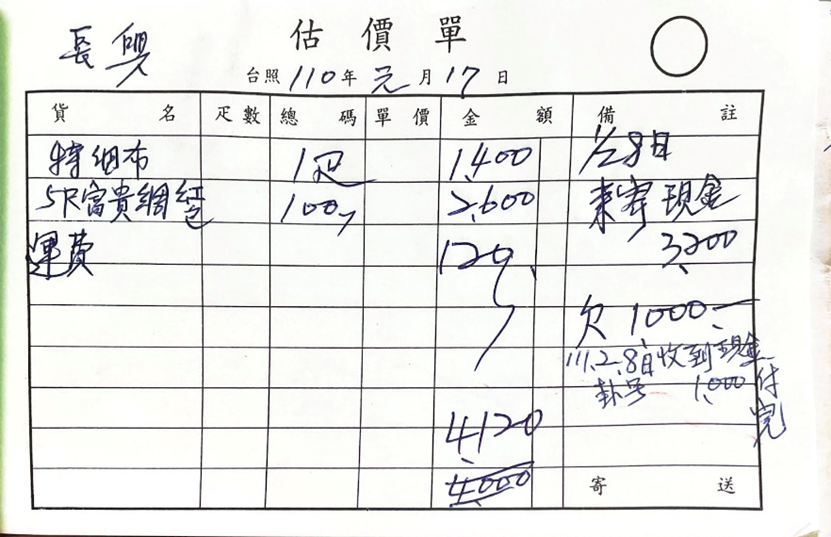 估價單
長興
台照 110年元月17日
貨名 疋數 總碼 單價 金額 備註
特細布 1疋 1,400 1/28日
5尺富貴網紅色 100y 2,600 來寄現金
運費 120 3,200
欠 1,000
111.2.8日收到現金
卦号 1,000 付完
4,120
4,000
寄送